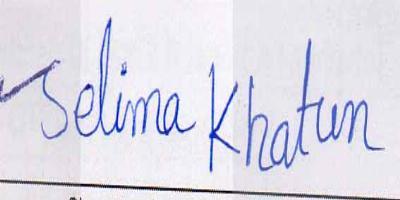 Selima Khatun